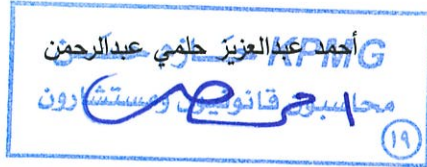 أحمد عبدالعزيز حلمي عبدالرحمن
KPMG حازم حسن
محاسبون قانونيون ومستشارون
١٩